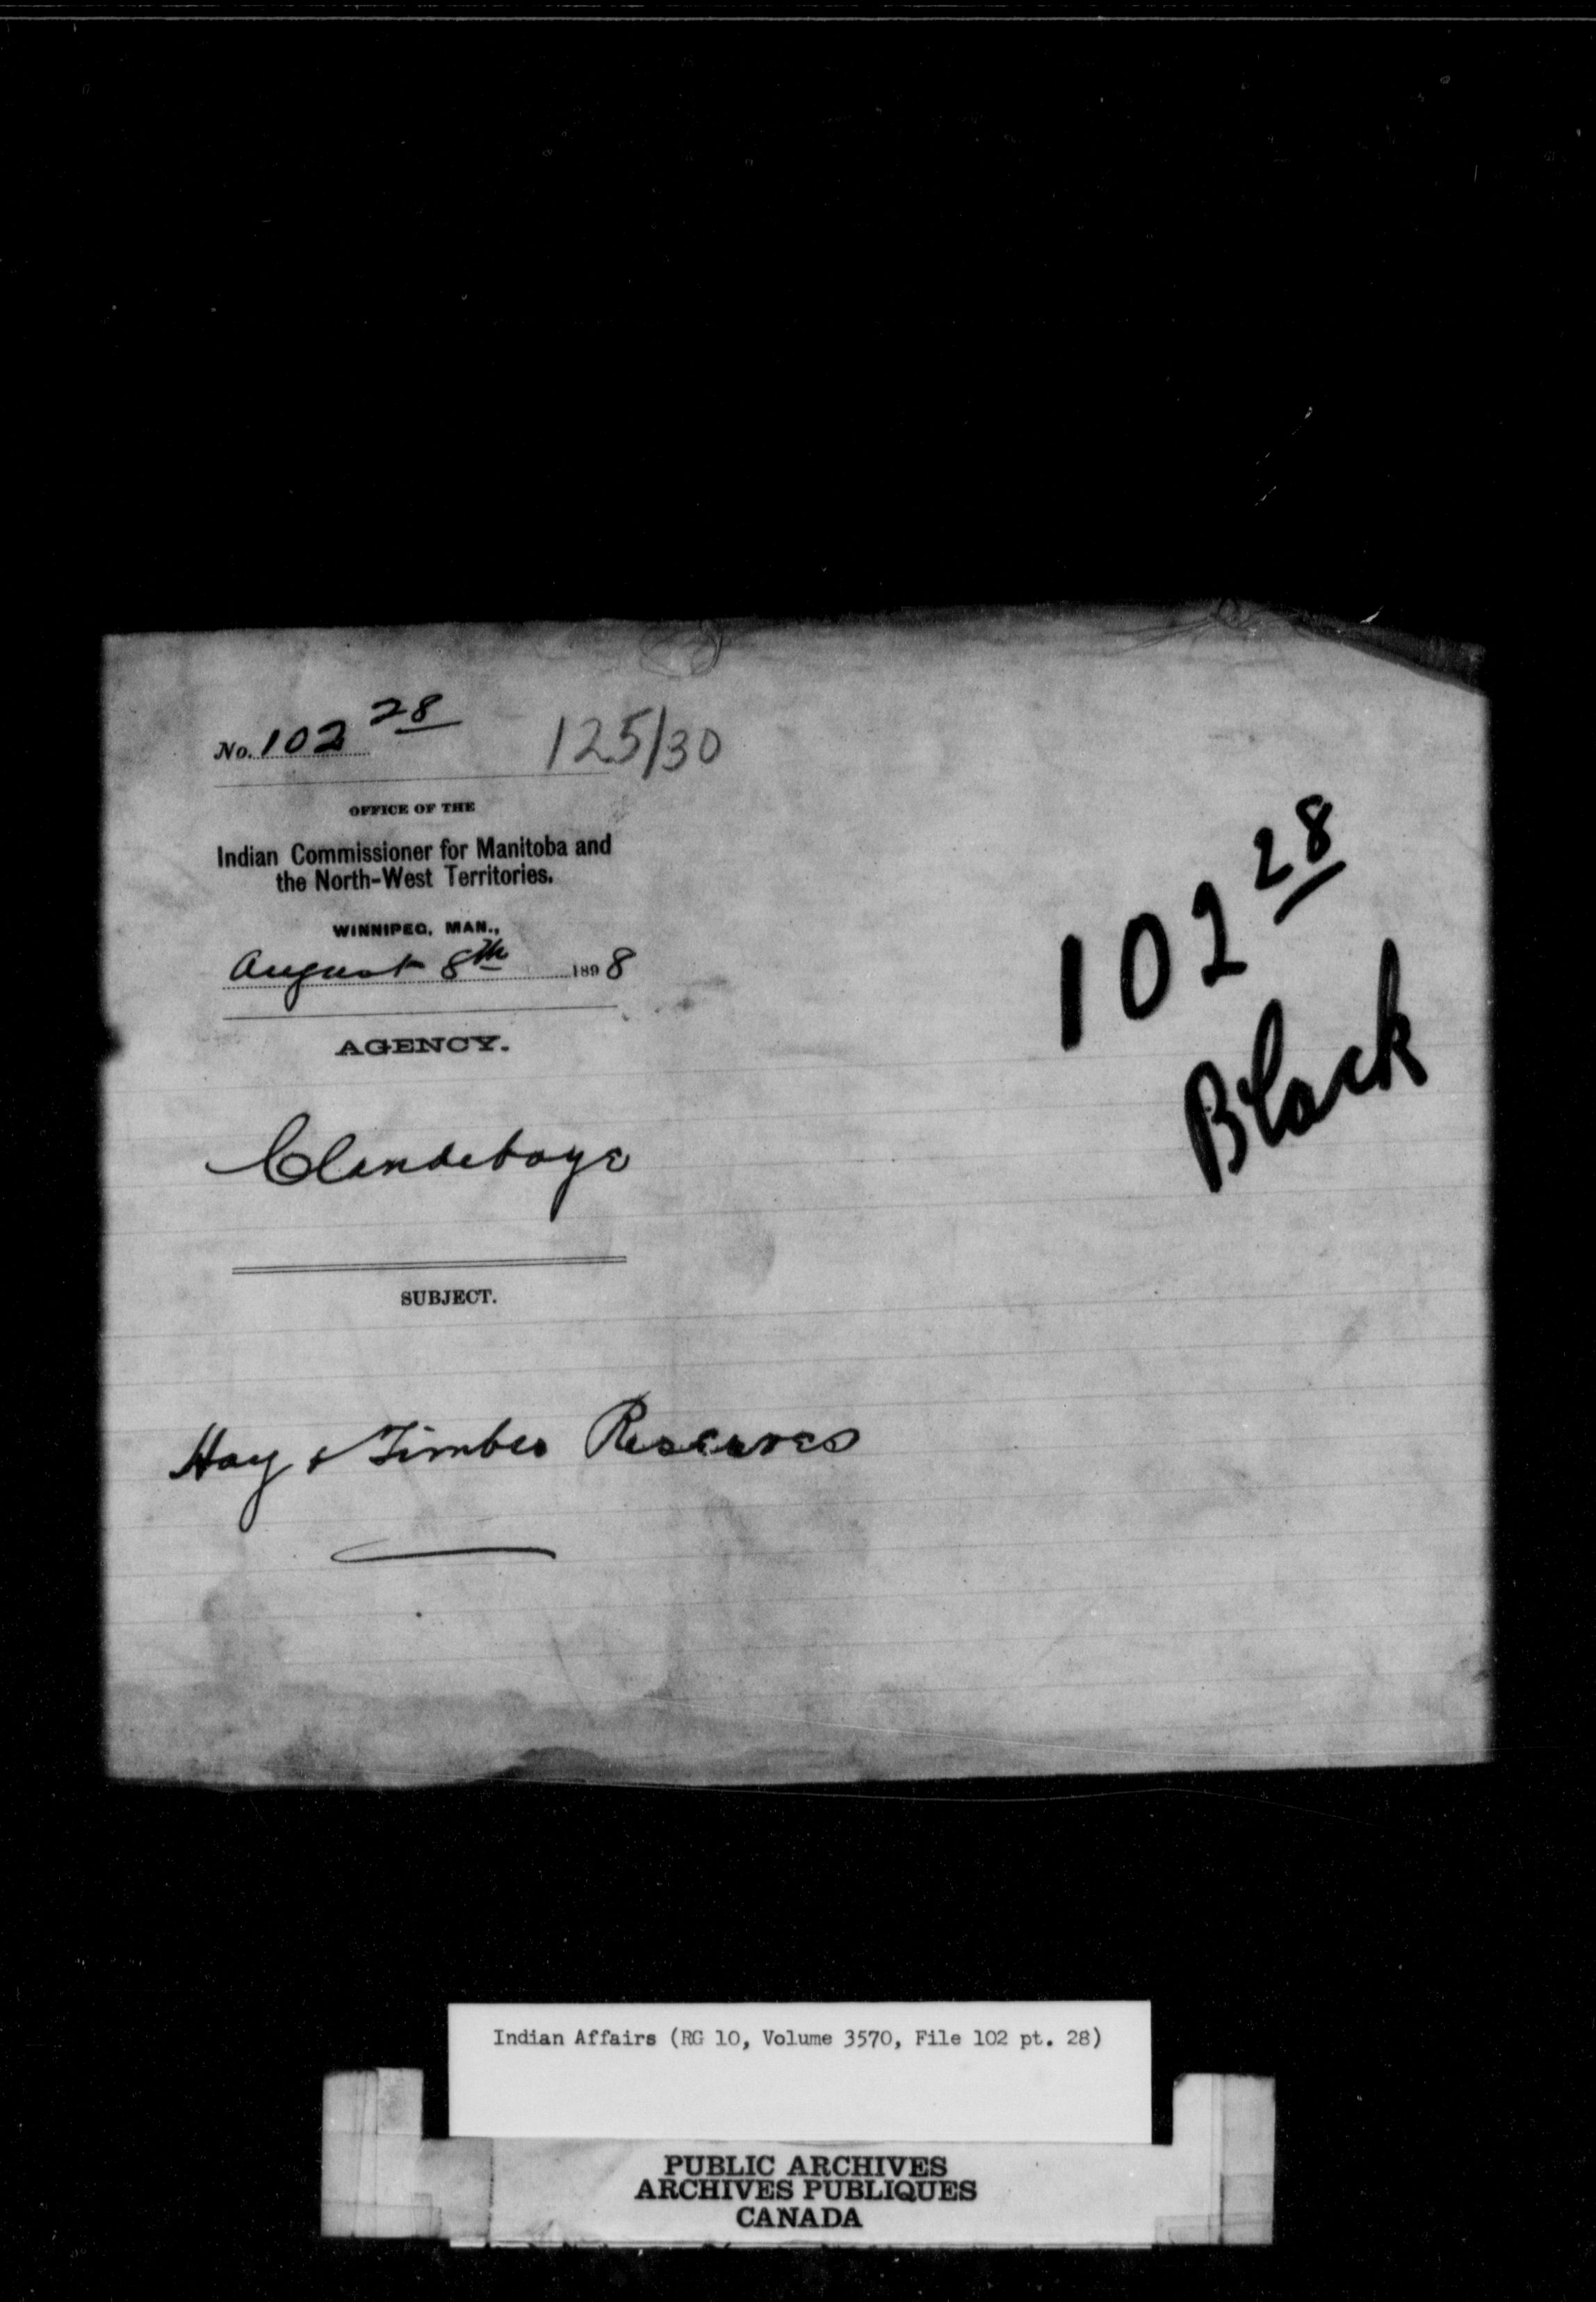 No. 102 28
125/30
OFFICE OF THE
Indian Commissioner for Manitoba and
the North-West Territories.
WINNIPEG, MAN.,
August 8th 1898
AGENCY.
Clandeboye
SUBJECT.
Hay & Timber Reserves
102 28
Black
Indian Affairs (RG 10, Volume 3570, File 102 pt. 28)
PUBLIC ARCHIVES
ARCHIVES PUBLIQUES
CANADA